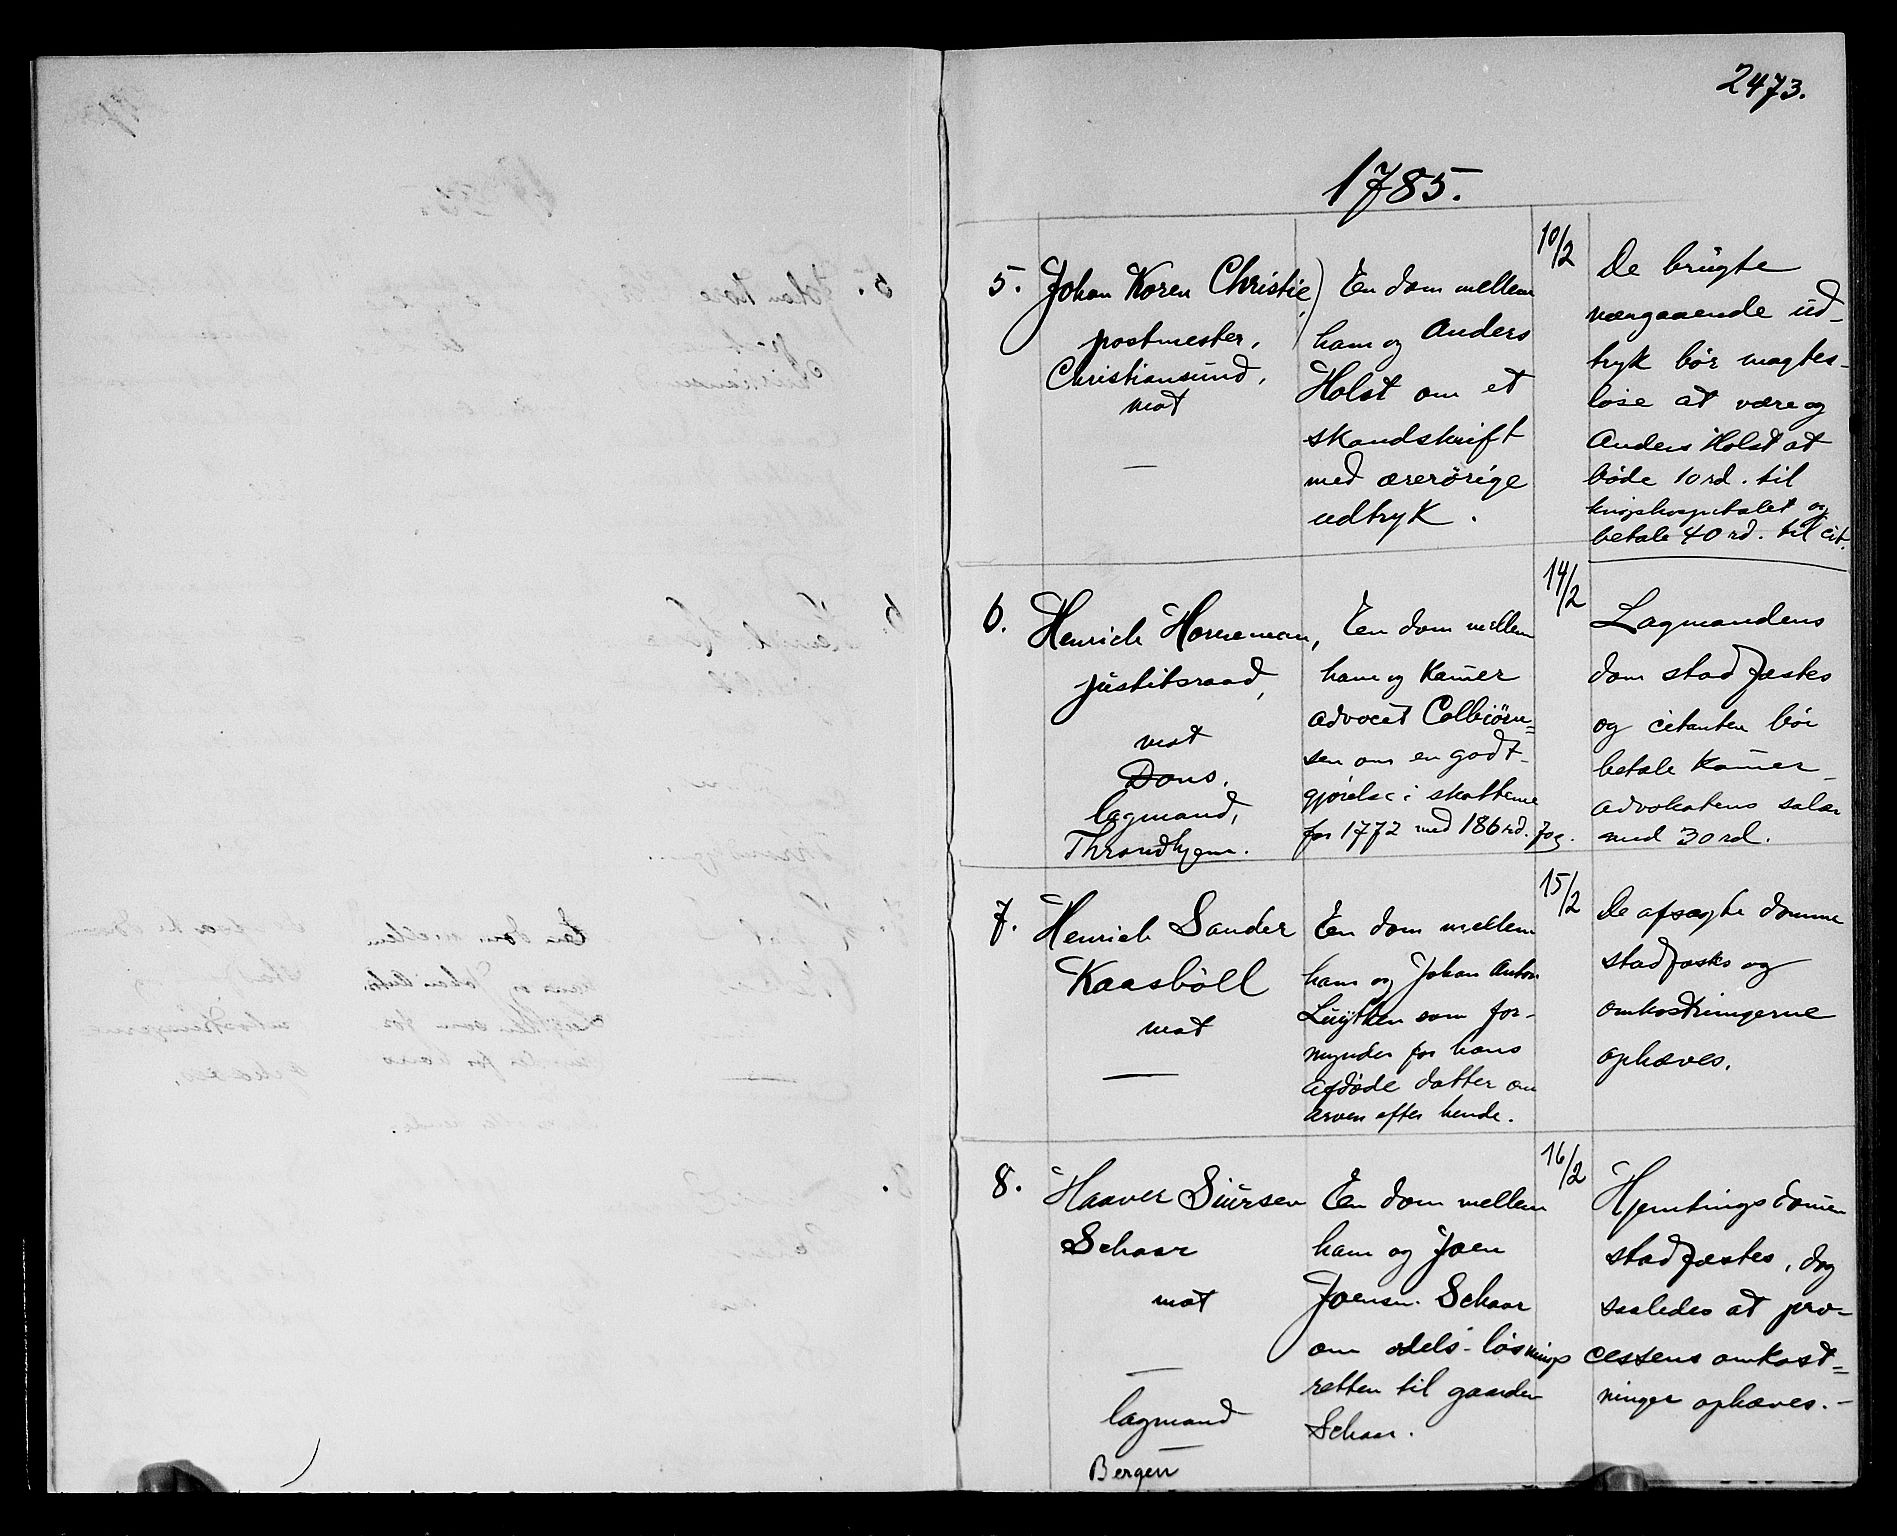 2473.
1785.
5. Johan Koren Christie,
postmester,
Christiansund,
mot
—
En dom mellem
ham og Anders
Holst om et
skandskrift
med ærerörige
udtryk.
10/2
De brugte
nærgaaende ud-
tryk bör magtes-
löse at være og
Anders Holst at
böde 10 rd. til
betale 40 rd. til cit.
6. Henrich Horneman,
justitsraad,
mot
Dons,
lagmand,
Throndhjem.
En dom mellem
ham og Kamer
advocat Colbiörn=
sen om en godt-
gjörelse i skatterne
for 1772 med 186 rd.
14/2
Lagmandens
dom stadfæstes
og citanten bör
betale Kamer-
advokatens salær
med 30 rd.
7. Henrich Sander
Kaasböll
mot
—
En dom mellem
ham og Johan Anton
Luÿtken som for-
mynder for hans
afdöde datter om
arven efter hende.
15/2
De afsagte domme
stadfæstes og
omkostningerne
ophæves.
8. Haaver Siursen
Schaar
mot
—
lagmand
Bergen
En dom mellem
ham og Joen
Joensen Schaar
om odels-lösnings
retten til gaarden
Schaar.
16/2
Hjemtings domen
stadfæstes, dog
saaledes at pro-
cessens omkost=
ninger ophæves.-